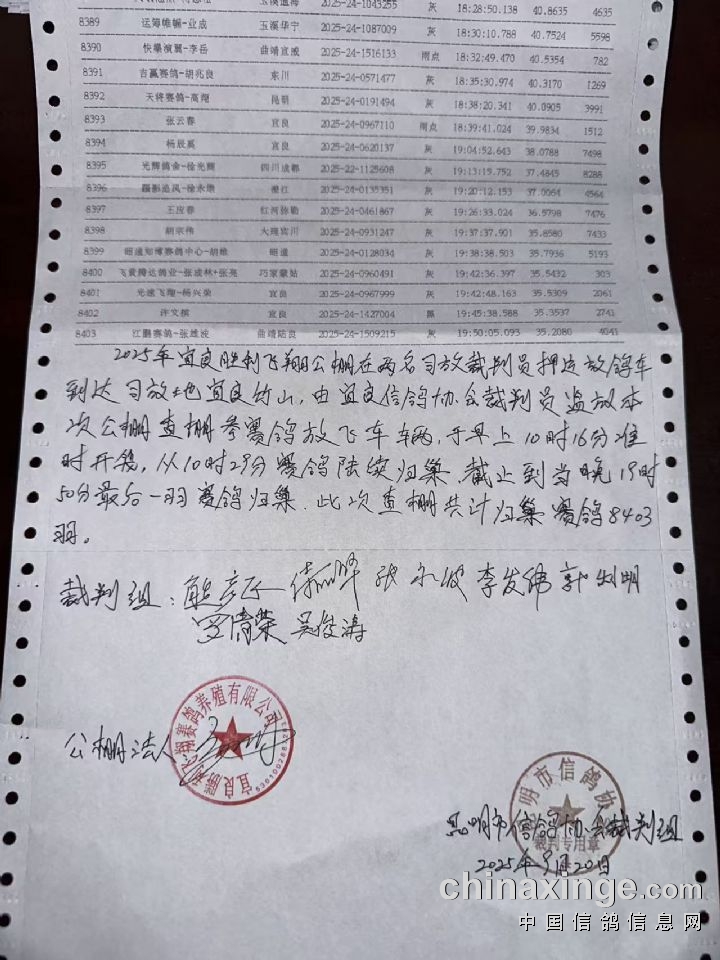 玉溪通海 2025-24-1043255 灰 18:28:50.138 40.8635 4635
8389 运筹帷幄-业成 玉溪华宁 2025-24-1087009 灰 18:30:10.788 40.7524 5598
8390 快攀演翼-李岳 曲靖宣威 2025-24-1516133 雨点 18:32:49.470 40.5354 782
8391 吉赢赛鸽-胡兆良 东川 2025-24-0571477 灰 18:35:30.974 40.3170 1269
8392 天祥赛鸽-高翔 昆明 2025-24-0191494 灰 18:38:20.341 40.0905 3991
8393 张云春 宜良 2025-24-0967110 雨点 18:39:41.024 39.9834 1512
8394 杨辰奚 宜良 2025-24-0620137 灰 19:04:52.643 38.0788 7498
8395 光辉鸽舍-徐光辉 四川成都 2025-22-1125608 灰 19:13:15.752 37.4845 8288
8396 蹑影追风-徐永墩 澄江 2025-24-0135351 灰 19:20:12.153 37.0064 4564
8397 王应春 红河弥勒 2025-24-0461867 灰 19:26:33.024 36.5798 7476
8398 胡宗伟 大理宾川 2025-24-0931247 灰 19:37:37.901 35.8580 7433
8399 昭通知博赛鸽中心-胡雄 昭通 2025-24-0128034 灰 19:38:38.503 35.7936 5193
8400 飞黄腾达鸽业-张成林+张亮 巧家蒙姑 2025-24-0960491 灰 19:42:36.397 35.5432 303
8401 光速飞翔-杨兴荣 宜良 2025-24-0967999 灰 19:42:48.163 35.5309 2061
8402 许文槟 宜良 2025-24-1427004 黑 19:45:38.588 35.3537 2741
8403 江鹏赛鸽-张雄波 曲靖陆良 2025-24-1509215 灰 19:50:05.093 35.2080 4041
2025年宜良胜利飞翔公棚在两名司放裁判员押送放鸽车
到达司放地宜良竹山，由宜良信鸽协会裁判员监放本
次公棚查棚参赛鸽放飞车辆，于早上10时16分准
时开笼，从10时29分赛鸽陆续归巢，截止到当晚19时
50分最后一羽赛鸽归巢，此次查棚共计归巢赛鸽8403
羽。
裁判组： 张永波 李发伟 郭利明
罗清荣 吴俊涛
翔赛鸽养殖有限公司
宜良胜利飞
公棚法人
昆明市信鸽协会
裁判专用章
昆明市信鸽协会裁判组
2025年9月20日
chinaxinge.com
中国信鸽信息网